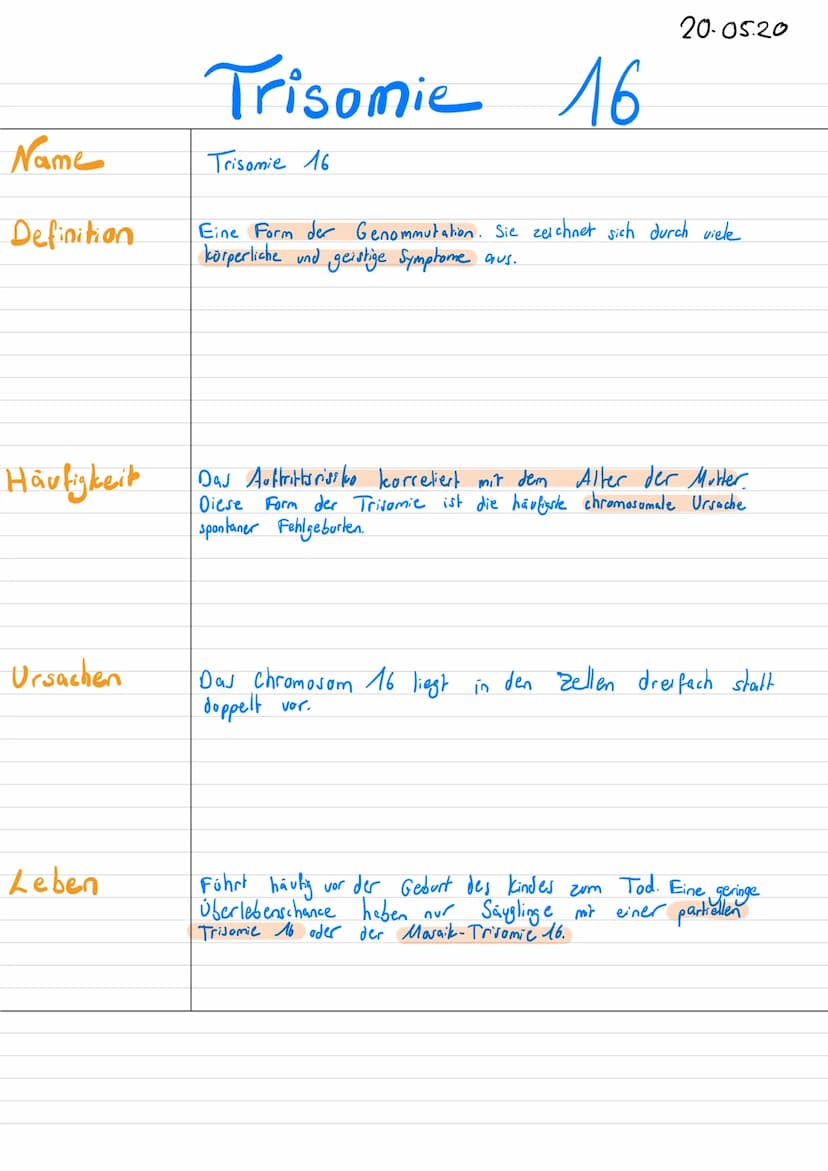 20.05.20
Trisomie 16
Name
Trisomie 16
Definition
Eine Form der Genommutation. Sie zeichnet sich durch viele
körperliche und geistige Symptome aus.
Häufigkeit
Das Auftrittsrisiko korreliert mit dem Alter der Mutter.
Diese Form der Trisomie ist die häufigste chromosomale Ursache
spontaner Fehlgeburten.
Ursachen
Das Chromosom 16 liegt in den Zellen dreifach statt
doppelt vor.
Leben
Führt häufig vor der Geburt des Kindes zum Tod. Eine geringe
Überlebenschance haben nur Säuglinge mit einer partiellen
Trisomie 16 oder der Mosaik-Trisomie 16.